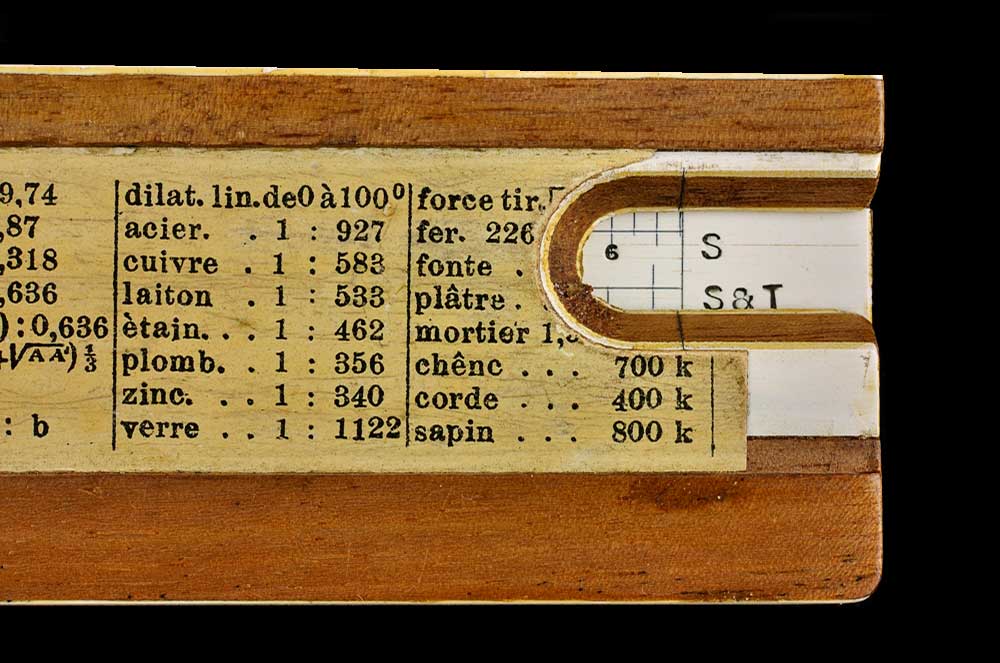 9,74
,87
,318
,636
) : 0,636
√A A') 1/3
: b
dilat. lin. de 0 à 100⁰
acier. . 1 : 927
cuivre . 1 : 583
laiton . 1 : 533
ètain. . . 1 : 462
plomb. . 1 : 356
zinc. . . 1 : 340
verre . . 1 : 1122
force tir.
fer. 226
fonte .
plâtre .
mortier 1,
chênc . . . 700 k
corde . . . 400 k
sapin . . . 800 k
6
S
S & T